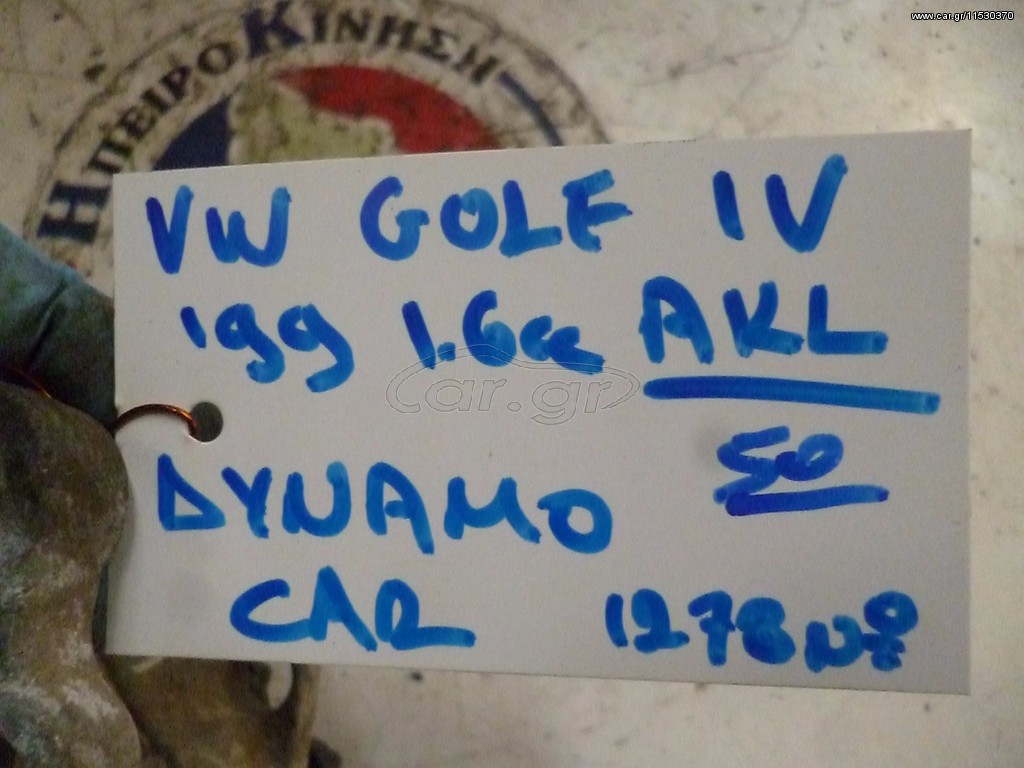 www.car.gr/11530370
ΗΠΕΙΡΟΚΙΝΗΣΗ
VW GOLF IV
'99 1.6cc AKL
50
DYNAMO
CAR 1278 Nº
car.gr